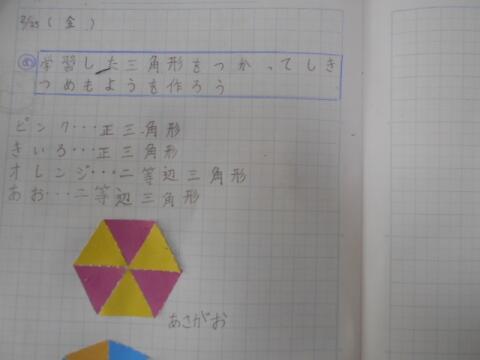 2/25(金)
め 学習した三角形をつかってしき
つめもようを作ろう
ピンク・・・正三角形
きいろ・・・正三角形
オレンジ・・・二等辺三角形
あお・・・二等辺三角形
あさがお